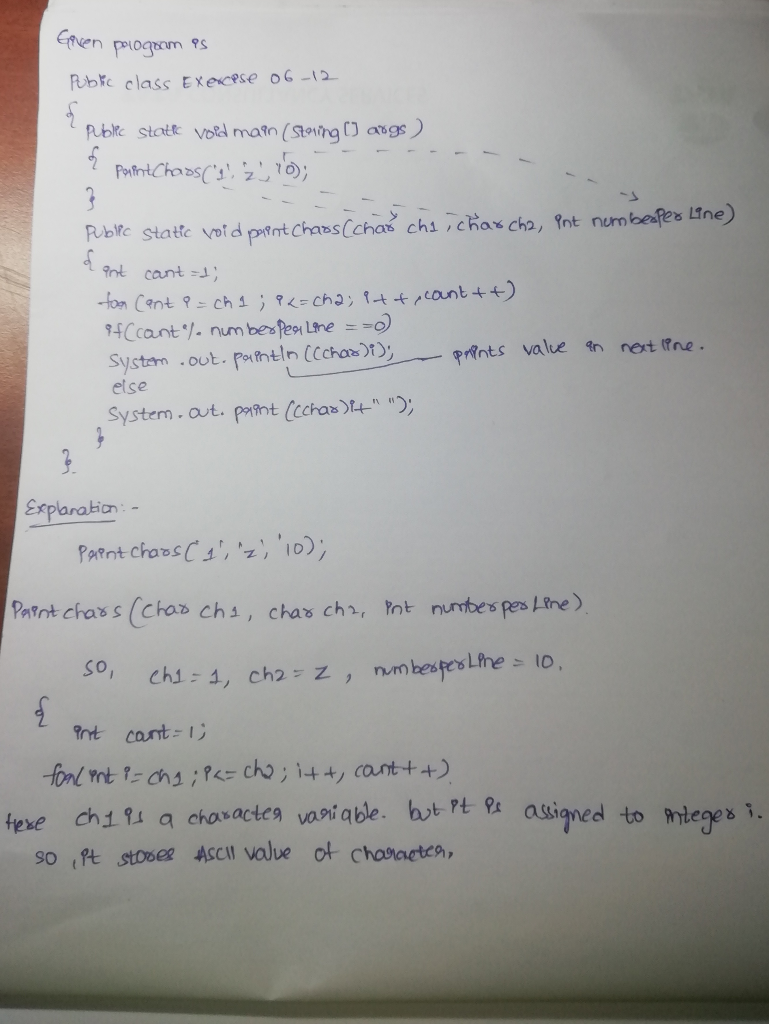 Given program is
Public class Exercise 06-12
{
Public static void main (String [] args)
{
PrintChars('1', 'z', '10);
}
Public static void printChars (char ch1, char ch2, int numberper Line)
{
int count =1;
for (int i = ch1 ; i<=ch2; i++, count++)
if(count % numberperLine ==0)
System .out. println ((char)i); prints value in next line.
else
System. out. print ((char)i+" ");
}
}.
Explanation:-
Print chars('1', 'z', '10);
Print chars (char ch1, char ch2, int numberper Line).
so, ch1 = 1, ch2 = z , numberperLine = 10.
{
int count=1;
for(int i=ch1; i<=ch2; i++, count++)
Here ch1 is a character variable. but it is assigned to integer i.
so, it stores ASCII value of character,